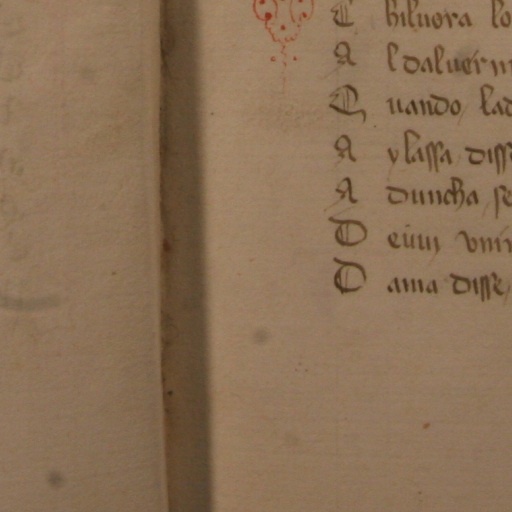 C hiluora lo
A l daluerm
Q uando lad
A y lassa disse
A duncha se
D
D ama disse